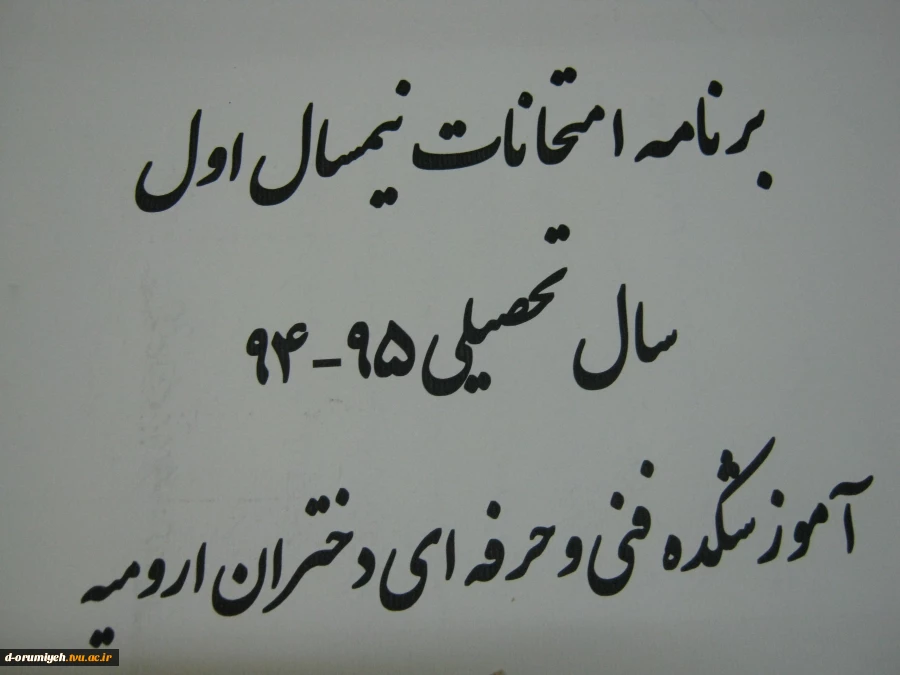 برنامه امتحانات نیمسال اول
سال تحصیلی ۹۵-۹۴
آموزشکده فنی و حرفه ای دختران ارومیه
d-orumiyeh.tvu.ac.ir